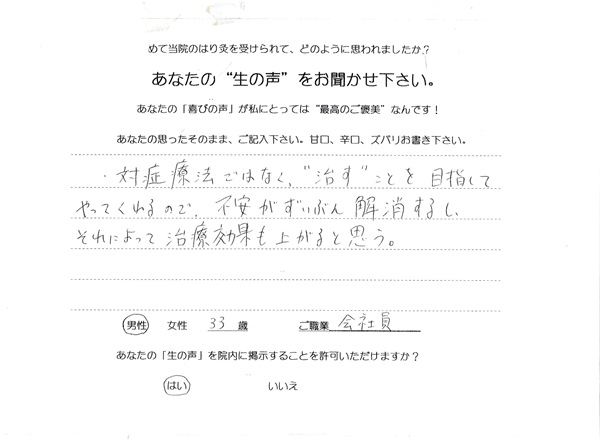 めて当院のはり灸を受けられて、どのように思われましたか？
あなたの“生の声”をお聞かせ下さい。
あなたの「喜びの声」が私にとっては“最高のご褒美”なんです！
あなたの思ったそのまま、ご記入下さい。甘口、辛口、ズバリお書き下さい。
・対症療法ではなく、“治す”ことを目指して
やってくれるので、不安がずいぶん解消するし、
それによって治療効果も上がると思う。
男性 女性 33 歳 ご職業 会社員
あなたの「生の声」を院内に掲示することを許可いただけますか？
はい いいえ